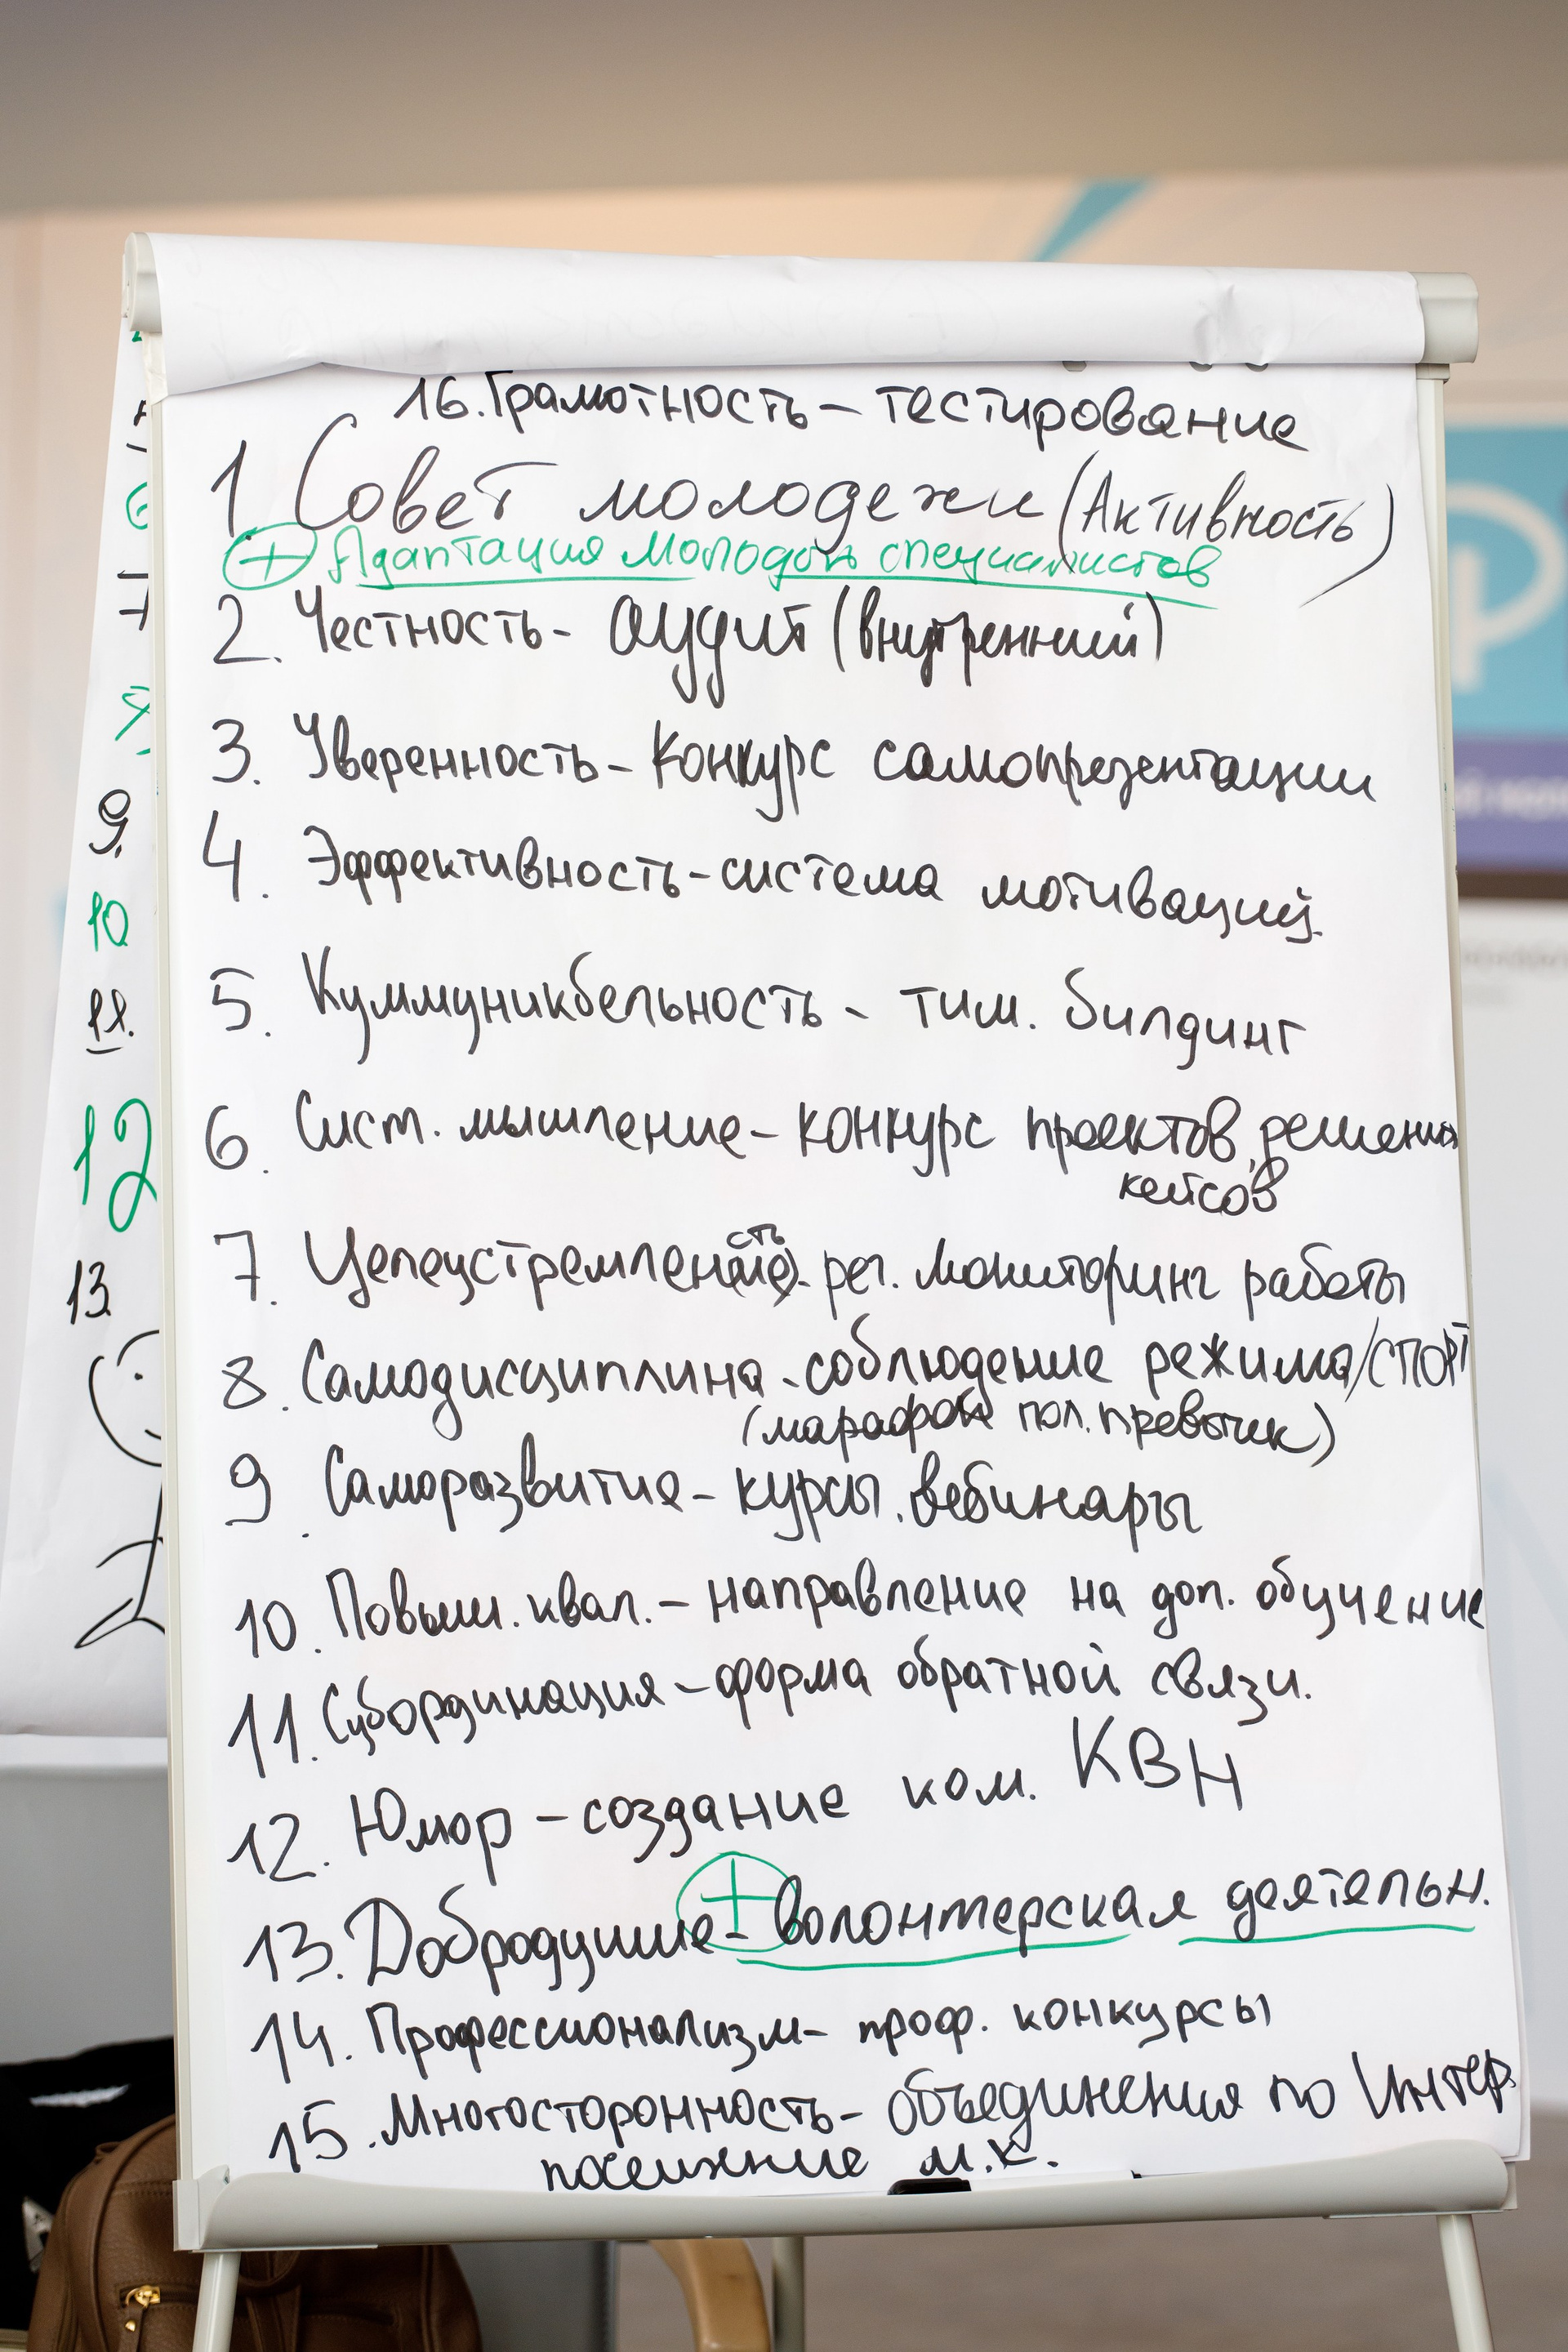 16. Грамотность – тестирование
1 Совет молодежи (Активность)
+ Адаптация молодых специалистов
2. Честность - аудит (внутренний)
3. Уверенность - конкурс самопрезентации
4. Эффективность - система мотиваций
5. Куммуникбельность - тим. билдинг
6. Сист. мышление - конкурс проектов, решение
кейсов
7. рег. мониторинг работы
8. Самодисциплина - соблюдение режима/СПОРТ
(марафон пол. превычек)
9. Саморазвитие - курсы, вебинары
10. Повыш. квал. - направление на доп. обучение
11. Субординация - форма обратной связи.
12. Юмор - создание ком. КВН
13. Добродушие - + волонтерская деятельн.
14. Профессионализм - проф. конкурсы
15. Многосторонность - объединения по Интер.
м.к.
9.
10
11.
12
13